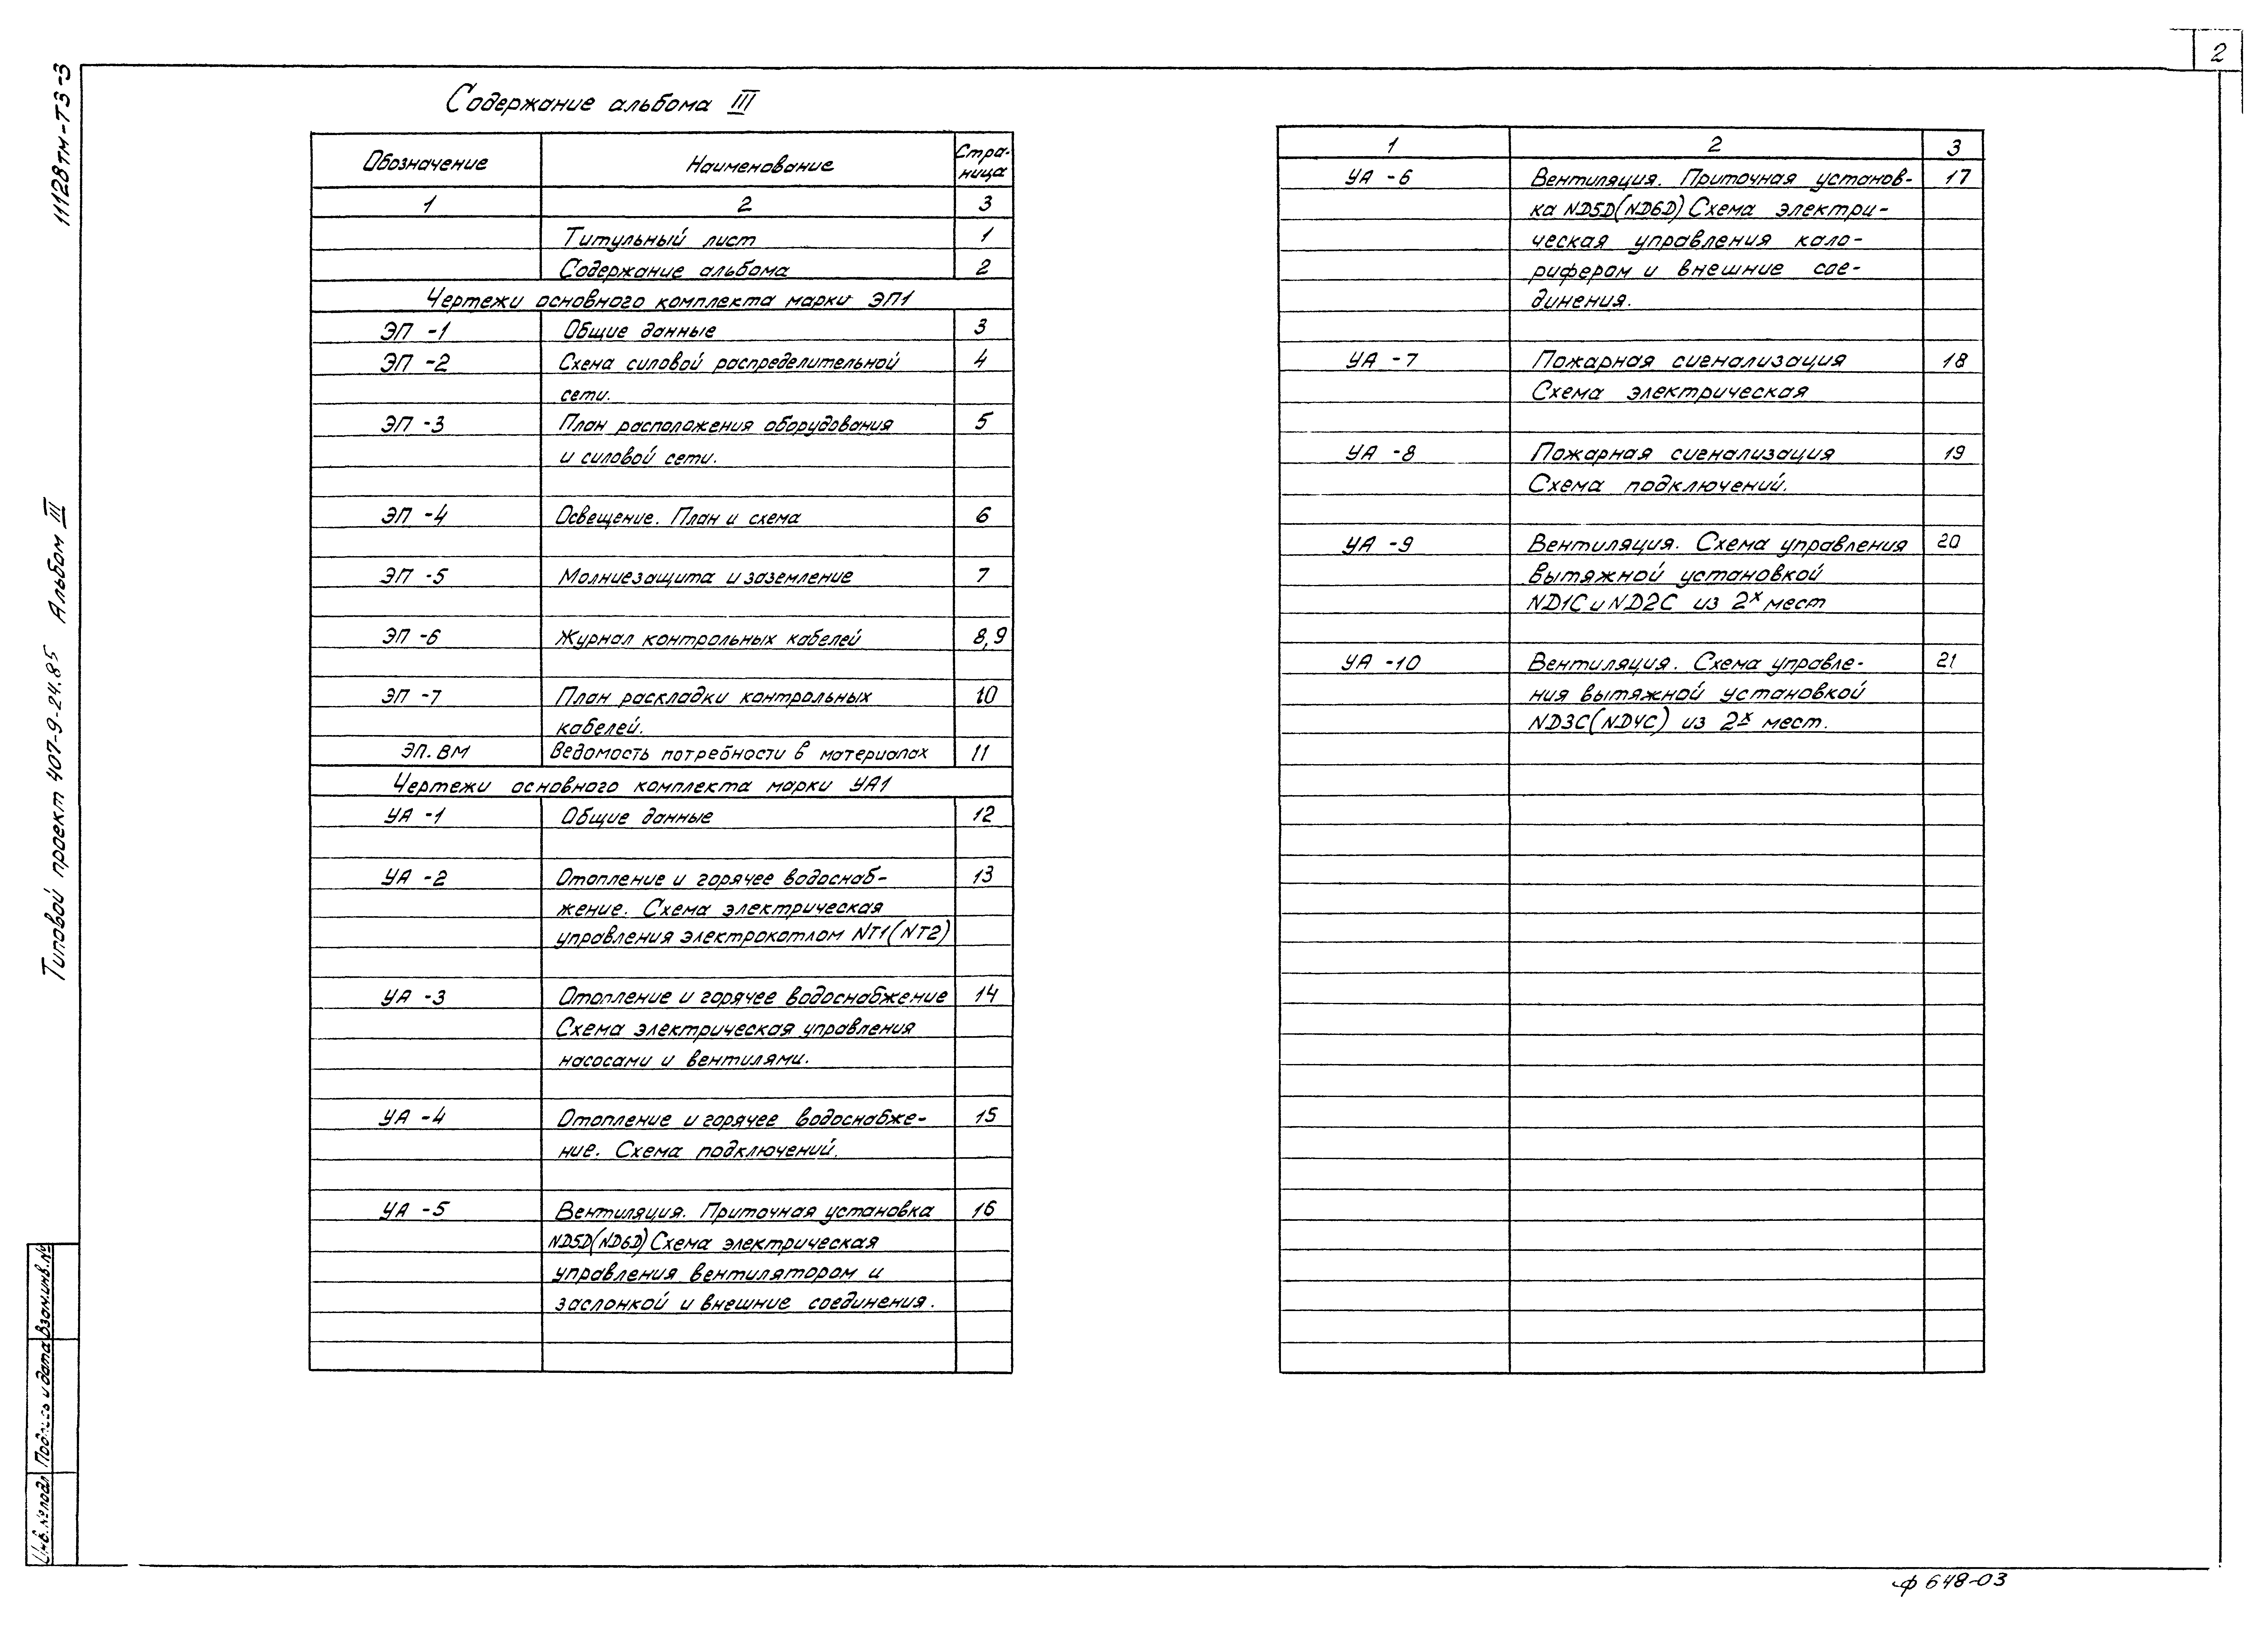 2
11128тм-Т3-3
Типовой проект 407-9-24.85 Альбом III
Содержание альбома III
Обозначение Наименование Стра-
ница
1 2 3
Титульный лист 1
Содержание альбома 2
Чертежи основного комплекта марки ЭП1
ЭП -1 Общие данные 3
ЭП -2 Схема силовой распределительной 4
сети.
ЭП -3 План расположения оборудования 5
и силовой сети.
ЭП -4 Освещение. План и схема 6
ЭП -5 Молниезащита и заземление 7
ЭП -6 Журнал контрольных кабелей 8,9
ЭП -7 План раскладки контрольных 10
кабелей.
ЭП. ВМ Ведомость потребности в материалах 11
Чертежи основного комплекта марки УА1
УА -1 Общие данные 12
УА -2 Отопление и горячее водоснаб- 13
жение. Схема электрическая
управления электрокотлом NT1(NT2)
УА -3 Отопление и горячее водоснабжение 14
Схема электрическая управления
насосами и вентилями.
УА -4 Отопление и горячее водоснабже- 15
ние. Схема подключений.
УА -5 Вентиляция. Приточная установка 16
ND5D(ND6D) Схема электрическая
управления вентилятором и
заслонкой и внешние соединения.
1 2 3
УА -6 Вентиляция. Приточная установ- 17
ка ND5D(ND6D) Схема электри-
ческая управления кало-
рифером и внешние сое-
динения.
УА -7 Пожарная сигнализация 18
Схема электрическая
УА -8 Пожарная сигнализация 19
Схема подключений.
УА -9 Вентиляция. Схема управления 20
вытяжной установкой
ND1C и ND2C из 2х мест
УА -10 Вентиляция. Схема управле- 21
ния вытяжной установкой
ND3C(ND4C) из 2х мест.
Инв.№подл Подпись и дата Взам.инв.№
ф 648-03